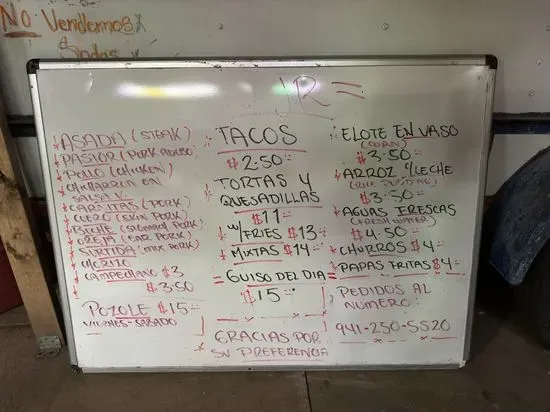 No Vendemos
Sodas
JR
ASADA (STEAK)
PASTOR (PORK ADOBO)
POLLO (CHICKEN)
CHICHARRÓN EN
SALSA
CARNITAS (PORK)
CUERO (SKIN PORK)
BUCHE (STOMACH PORK)
OREJA (EAR PORK)
SURTIDA (MIX PORK)
CHORIZO
CAMPECHANO $3
$3.50
POZOLE $15
VIERNES-SABADO
TACOS
$2.50
TORTAS Y
QUESADILLAS
$11
W/FRIES $13
MIXTAS $14
GUISO DEL DIA
$15
GRACIAS POR
SU PREFERENCIA
ELOTE EN VASO
(CORN)
$3.50
ARROZ C/LECHE
(RICE PUDDING)
$3.50
AGUAS FRESCAS
(FRESH WATER)
$4.50
CHURROS $4
PAPAS FRITAS $4
PEDIDOS AL
NÚMERO:
941-250-5520